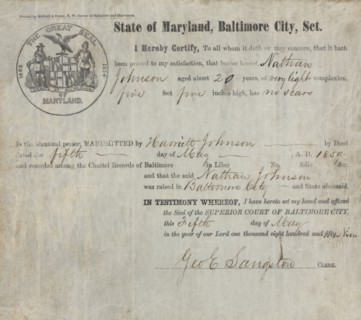 State of Maryland, Baltimore City, Sct.
I Hereby Certify, To all whom it doth or may concern, that it hath
been proved to my satisfaction, that bearer hereof, Nathan
Johnson aged about 20 years, of very light complexion,
five feet five inches high, has no scars
THE GREAT SEAL
OF
MARYLAND.
In the identical person, MANUMITTED by Harriett Johnson by Deed
dated the fifth day of May, A. D. 1850
and recorded among the Chattel Records of Baltimore in Liber No. folio
and that the said Nathan Johnson
was raised in Baltimore City and State aforesaid.
IN TESTIMONY WHEREOF, I have hereto set my hand and affixed
the Seal of the SUPERIOR COURT OF BALTIMORE CITY,
this Fifth day of May
in the year of our Lord one thousand eight hundred and fifty
Geo E Sangston CLERK.